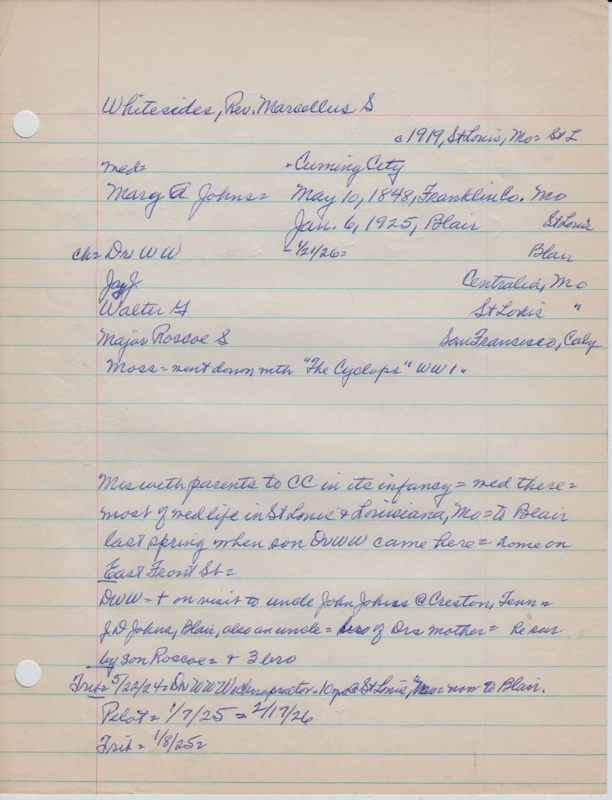 Whitesides, Rev. Marcellus S
c1919, St Louis, Mo= St L
med= - Cuming City
Mary A Johns= May 10, 1848, Franklin Co. Mo
Jan. 6, 1925, Blair St Louis
ch= Dr W W - 1/21/26= Blair
Jay J. Centralia, Mo
Walter G St Louis "
Major Roscoe S San Francisco, Calif
Moss= went down with "The Cyclops" WW 1.
with parents to CC in its infancy= med there=
most of med life in St Louis & Louisiana, Mo= to Blair
last spring when son Dr WW came here= home on
East Front St=
DWW= + on visit to uncle John Johns @ Creston, Tenn=
J.D Johns, Blair, also an uncle= bro of Drs mother= He sur
by son Roscoe= & 3 bro
Trib= 5/22/24= Dr WW W @ St Louis, Mo= now to Blair.
Pilot= 1/7/25= 2/17/26
Trib= 1/8/25=